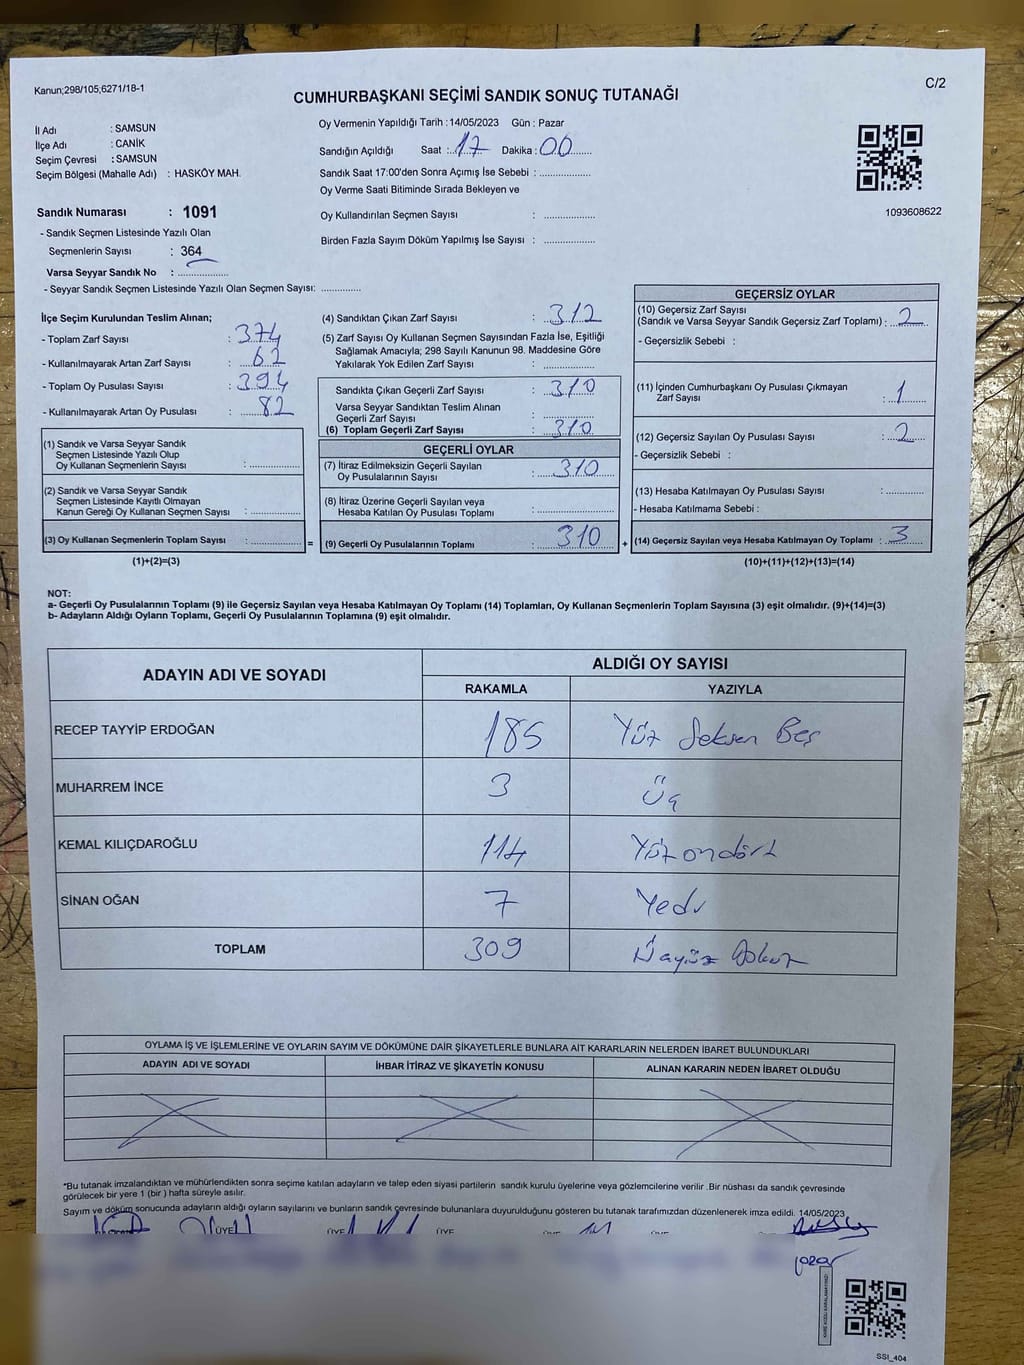 Kanun;298/105,6271/18-1
C/2
CUMHURBAŞKANI SEÇİMİ SANDIK SONUÇ TUTANAĞI
İl Adı : SAMSUN
İlçe Adı : CANİK
Seçim Çevresi : SAMSUN
Seçim Bölgesi (Mahalle Adı) : HASKÖY MAH.
Sandık Numarası : 1091
- Sandık Seçmen Listesinde Yazılı Olan
Seçmenlerin Sayısı : 364
Varsa Seyyar Sandık No : ..............
- Seyyar Sandık Seçmen Listesinde Yazılı Olan Seçmen Sayısı: ............
Oy Vermenin Yapıldığı Tarih : 14/05/2023 Gün : Pazar
Sandığın Açıldığı Saat : 17 Dakika : 00
Sandık Saat 17:00'den Sonra Açımış İse Sebebi : ..............
Oy Verme Saati Bitiminde Sırada Bekleyen ve
Oy Kullandırılan Seçmen Sayısı : ..............
Birden Fazla Sayım Döküm Yapılmış İse Sayısı : ..............
1093608622
İlçe Seçim Kurulundan Teslim Alınan;
- Toplam Zarf Sayısı : 374
- Kullanılmayarak Artan Zarf Sayısı : 62
- Toplam Oy Pusulası Sayısı : 394
- Kullanılmayarak Artan Oy Pusulası : 82
(1) Sandık ve Varsa Seyyar Sandık
Seçmen Listesinde Yazılı Olup
Oy Kullanan Seçmenlerin Sayısı : ..............
(2) Sandık ve Varsa Seyyar Sandık
Seçmen Listesinde Kayıtlı Olmayan
Kanun Gereği Oy Kullanan Seçmen Sayısı : ..............
(3) Oy Kullanan Seçmenlerin Toplam Sayısı : ..............
(1)+(2)=(3)
=
(4) Sandıktan Çıkan Zarf Sayısı : 312
(5) Zarf Sayısı Oy Kullanan Seçmen Sayısından Fazla İse, Eşitliği
Sağlamak Amacıyla; 298 Sayılı Kanunun 98. Maddesine Göre
Yakılarak Yok Edilen Zarf Sayısı : ..............
Sandıkta Çıkan Geçerli Zarf Sayısı : 310
Varsa Seyyar Sandıktan Teslim Alınan
Geçerli Zarf Sayısı : ..............
(6) Toplam Geçerli Zarf Sayısı : 310
GEÇERLİ OYLAR
(7) İtiraz Edilmeksizin Geçerli Sayılan
Oy Pusulalarının Sayısı : 310
(8) İtiraz Üzerine Geçerli Sayılan veya
Hesaba Katılan Oy Pusulası Toplamı : ..............
(9) Geçerli Oy Pusulalarının Toplamı : 310
+
GEÇERSİZ OYLAR
(10) Geçersiz Zarf Sayısı
(Sandık ve Varsa Seyyar Sandık Geçersiz Zarf Toplamı) : 2
- Geçersizlik Sebebi :
(11) İçinden Cumhurbaşkanı Oy Pusulası Çıkmayan
Zarf Sayısı : 1
(12) Geçersiz Sayılan Oy Pusulası Sayısı : 2
- Geçersizlik Sebebi :
(13) Hesaba Katılmayan Oy Pusulası Sayısı : ..............
- Hesaba Katılmama Sebebi :
(14) Geçersiz Sayılan veya Hesaba Katılmayan Oy Toplamı : 3
(10)+(11)+(12)+(13)=(14)
NOT:
a- Geçerli Oy Pusulalarının Toplamı (9) ile Geçersiz Sayılan veya Hesaba Katılmayan Oy Toplamı (14) Toplamları, Oy Kullanan Seçmenlerin Toplam Sayısına (3) eşit olmalıdır. (9)+(14)=(3)
b- Adayların Aldığı Oyların Toplamı, Geçerli Oy Pusulalarının Toplamına (9) eşit olmalıdır.
ADAYIN ADI VE SOYADI ALDIĞI OY SAYISI
RAKAMLA YAZIYLA
RECEP TAYYİP ERDOĞAN 185 Yüz Seksen Beş
MUHARREM İNCE 3 Üç
KEMAL KILIÇDAROĞLU 114 Yüzondört
SİNAN OĞAN 7 Yedi
TOPLAM 309 Üçyüz Dokuz
OYLAMA İŞ VE İŞLEMLERİNE VE OYLARIN SAYIM VE DÖKÜMÜNE DAİR ŞİKAYETLERLE BUNLARA AİT KARARLARIN NELERDEN İBARET BULUNDUKLARI
ADAYIN ADI VE SOYADI İHBAR İTİRAZ VE ŞİKAYETİN KONUSU ALINAN KARARIN NEDEN İBARET OLDUĞU
*Bu tutanak imzalandıktan ve mühürlendikten sonra seçime katılan adayların ve talep eden siyasi partilerin sandık kurulu üyelerine veya gözlemcilerine verilir .Bir nüshası da sandık çevresinde
görülecek bir yere 1 (bir ) hafta süreyle asılır.
Sayım ve döküm sonucunda adayların aldığı oyların sayılarını ve bunların sandık çevresinde bulunanlara duyurulduğunu gösteren bu tutanak tarafımızdan düzenlenerek imza edildi. 14/05/2023
ÜYE ÜYE ÜYE ÜYE ÜYE
SSI_404